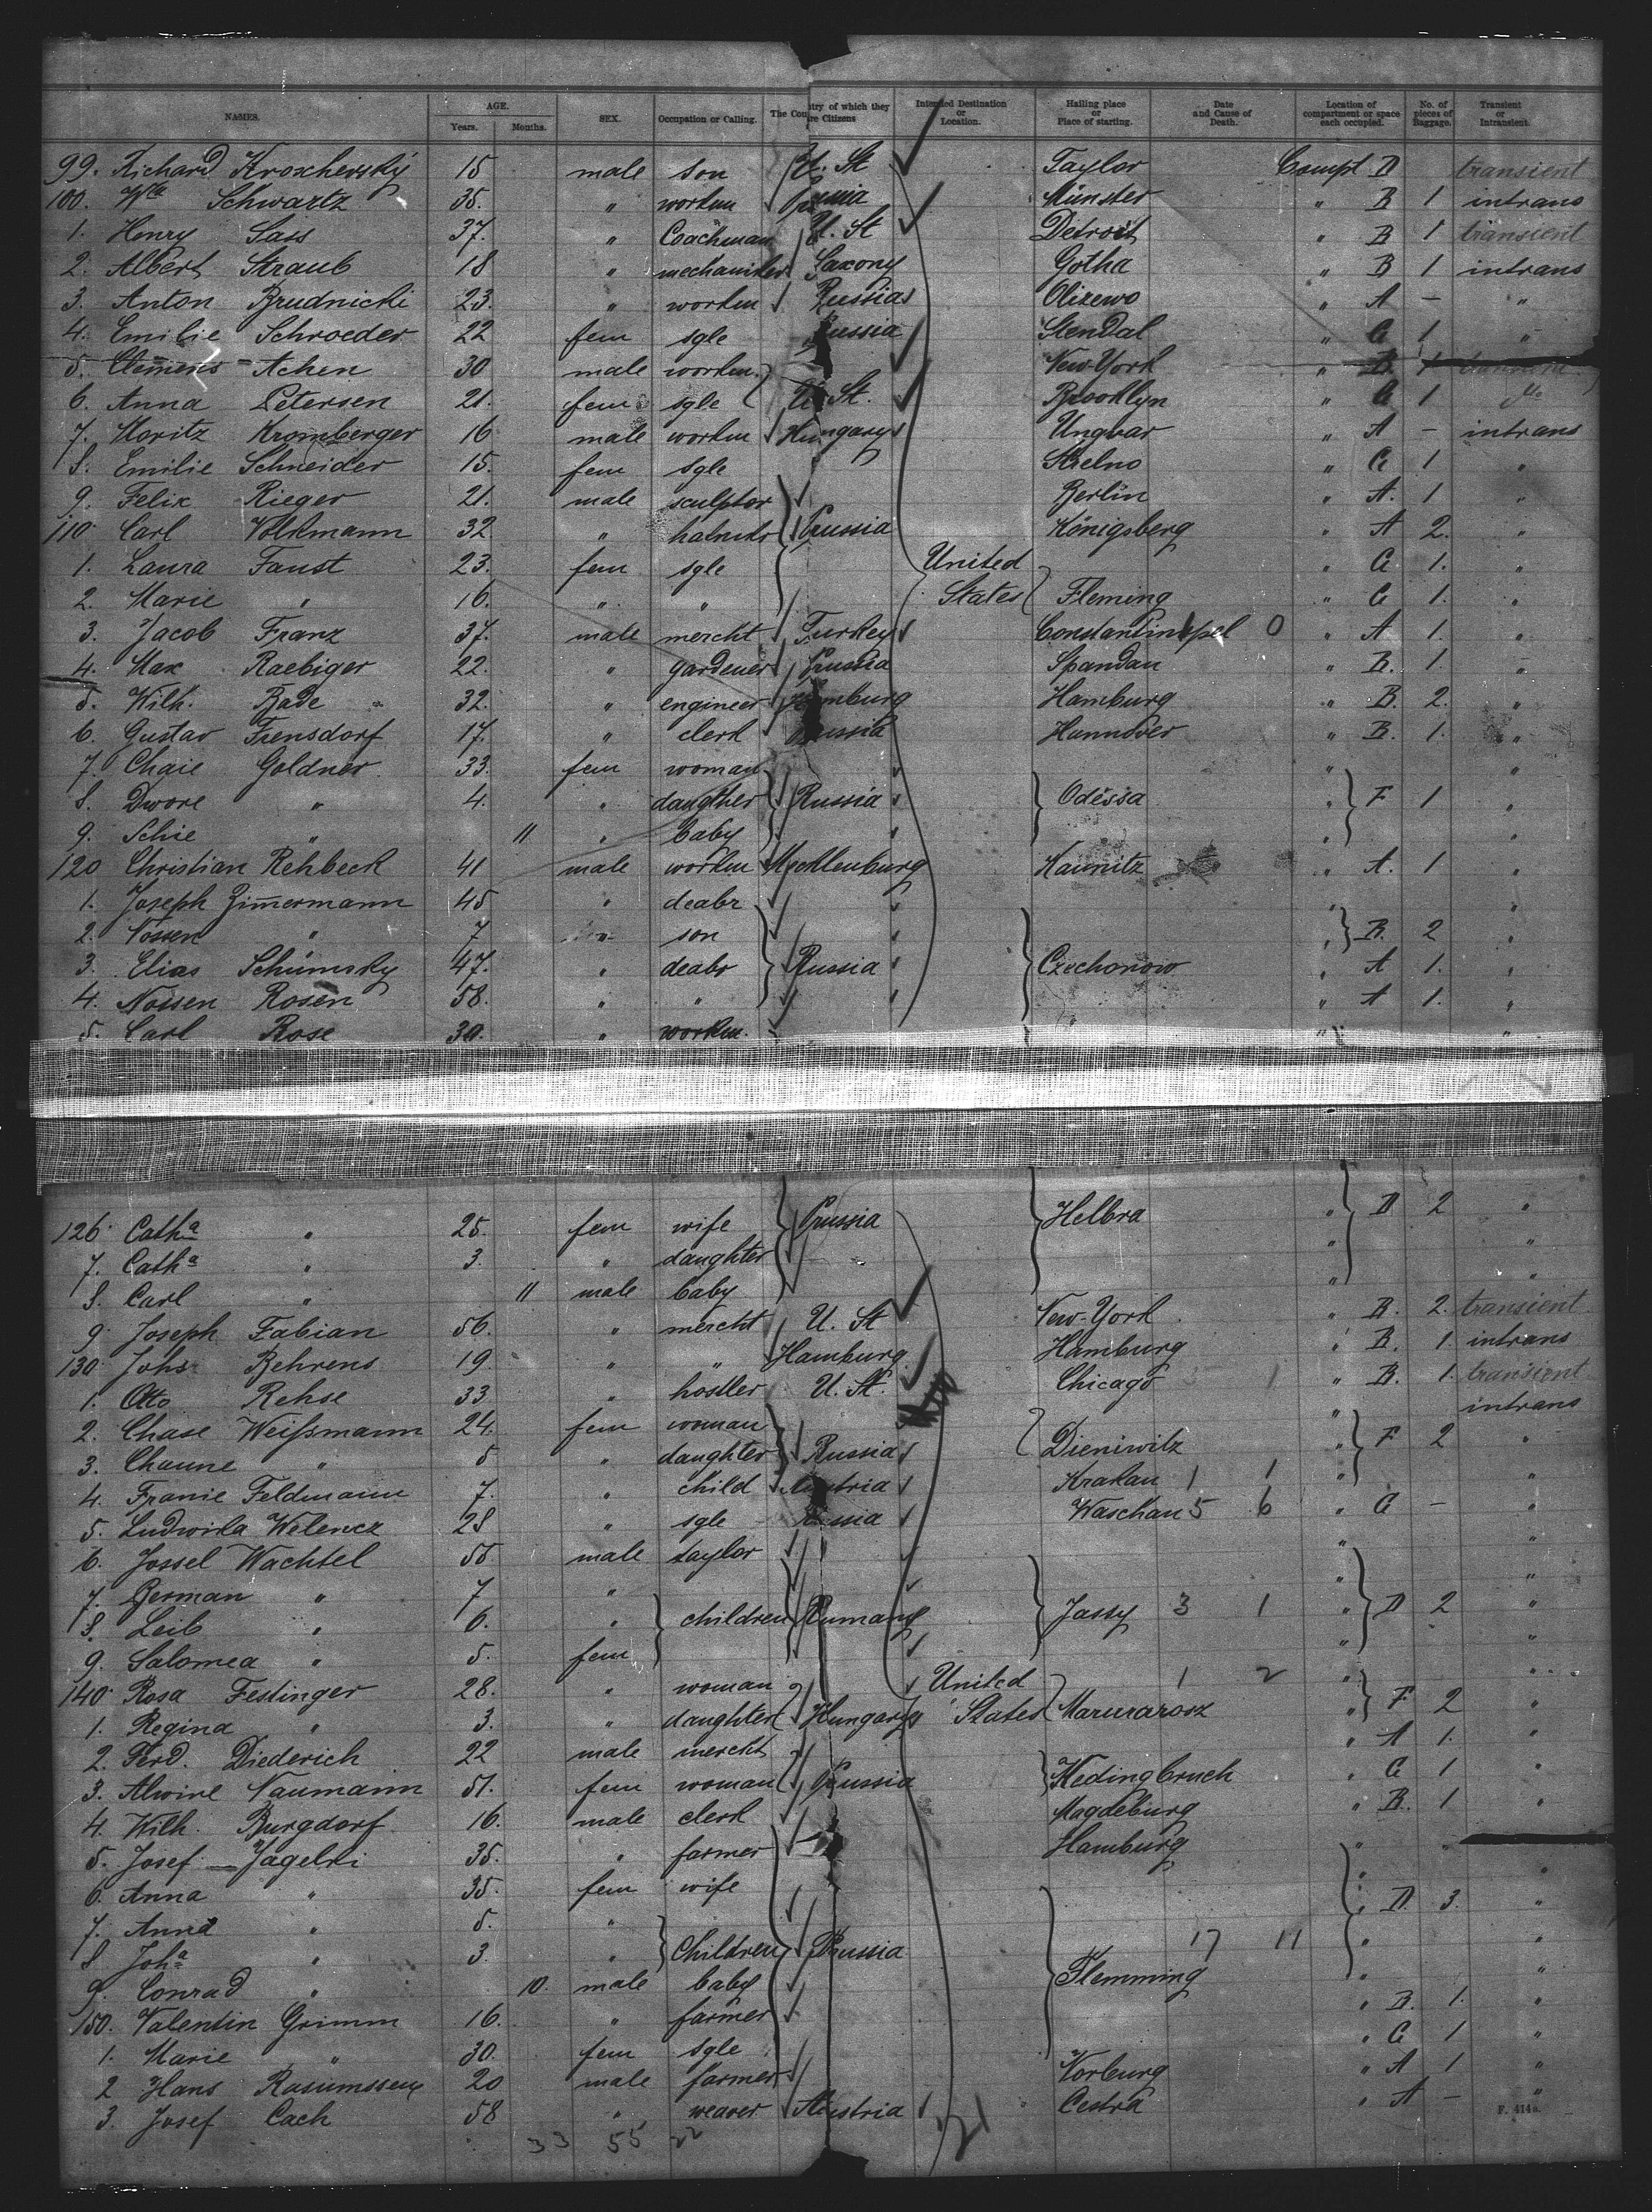 NAMES. AGE. Years. Months. SEX. Occupation or Calling. The Country of which they are Citizens Intended Destination or Location. Hailing place or Place of starting. Date and Cause of Death. Location of compartment or space each occupied. No. of pieces of Baggage. Transient or Intransient.
99. Richard Kroschewsky 15 male son U. St Taylor Compt D transient
100. Wm Schwartz 35. " workm Prussia Münster " B 1 intrans
1. Henry Sass 37. " Coachman U. St Detroit " B 1 transient
2. Albert Straub 18 " mechaniker Saxony Gotha " B 1 intrans
3. Anton Brudnicki 23. " workm Russia Olizewo " A - "
4. Emilie Schroeder 22 fem sgle Prussia Stendal " C 1 "
5. Clemens Achen 30 male workm. New York " B. 1 transient
6. Anna Petersen 21. fem sgle U. St. Brooklyn " C 1 do
7. Moritz Kromberger 16 male workm Hungary Ungvar " A - intrans
8. Emilie Schneider 15. fem sgle Strelno " C 1 "
9. Felix Rieger 21. male sculptor Berlin " A. 1 "
110. Carl Volkmann 32. " Prussia Königsberg " A 2. "
1. Laura Faust 23. fem sgle United " C 1. "
2. Marie " 16. " " States Fleming " C 1. "
3. Jacob Franz 37. male mercht Turkey Constantinopel 0 " A 1. "
4. Max Raebiger 22. " gardener Prussia Spandau " B. 1. "
5. Wilh. Bade 32. " engineer Hamburg Hamburg " B. 2. "
6. Gustav Frensdorf 17. " clerk Prussia Hannover " B. 1. "
7. Chaie Goldner 33. fem woman " "
8. Dwore " 4. " daugther Russia Odessa " F 1 "
9. Schie " 11 " baby " "
120 Christian Rehbeck 41 male workm Mecklenburg Kaunitz " A. 1 "
1. Joseph Zimmermann 45 " dealer " "
2. Nossen " 7 son " B. 2 "
3. Elias Schumsky 47. " dealer Russia Czechonow " A 1. "
4. Nossen Rosen 58. " " " A 1. "
5. Carl Rose 30. " workm. " "
126. Catha " 25. fem wife Prussia Helbra " D 2 "
7. Catha " 3. " daughter " "
8. Carl " 11 male baby " "
9. Joseph Fabian 56. " mercht U. St New-York " B. 2. transient
130. Johs Behrens 19. " " Hamburg Hamburg " B. 1. intrans
1. Otto Rehse 33 " hostler U. St. Chicago " B. 1. transient
2. Chase Weißmann 24. fem woman " intrans
3. Chaune " 5 " daughter Russia Dieniwitz " F 2 "
4. Franie Feldmann 7. " child Austria Krakau 1 1 " "
5. Ludwika Welencz 28 " sgle Russia Waschau 5 6 " C - "
6. Jossel Wachtel 55. male taylor " "
7. Berman " 7 " " "
8. Leib " 6. " children Rumany Jassy 3 1 " D 2 "
9. Salomea " 5. fem " "
140. Rosa Festinger 28. " woman United 1 2 " "
1. Regina " 3. " daughter Hungary States " F 2 "
2. Ferd. Diederich 22 male mercht " A 1. "
3. Alwine Naumann 51. fem woman Prussia Kedingbruch " C 1 "
4. Wilh. Burgdorf 16. male clerk Magdeburg " B. 1 "
5. Josef Jagelki 35. " farmer Hamburg "
6. Anna " 35. fem wife " "
7. Anna " 5. " D 3. "
8 Joha " 3. " Children Russia 17 11 " "
9. Conrad " 10. male baby Flemming " "
150. Valentin Grimm 16. " farmer " B. 1. "
1. Marie " 30. fem sgle " C 1 "
2 Hans Rasumssen 20 male farmer Vorburg " A 1 "
3. Josef Cach 58 " weaver Austria Cestra " A - "
33 55 22 21 F. 414a.